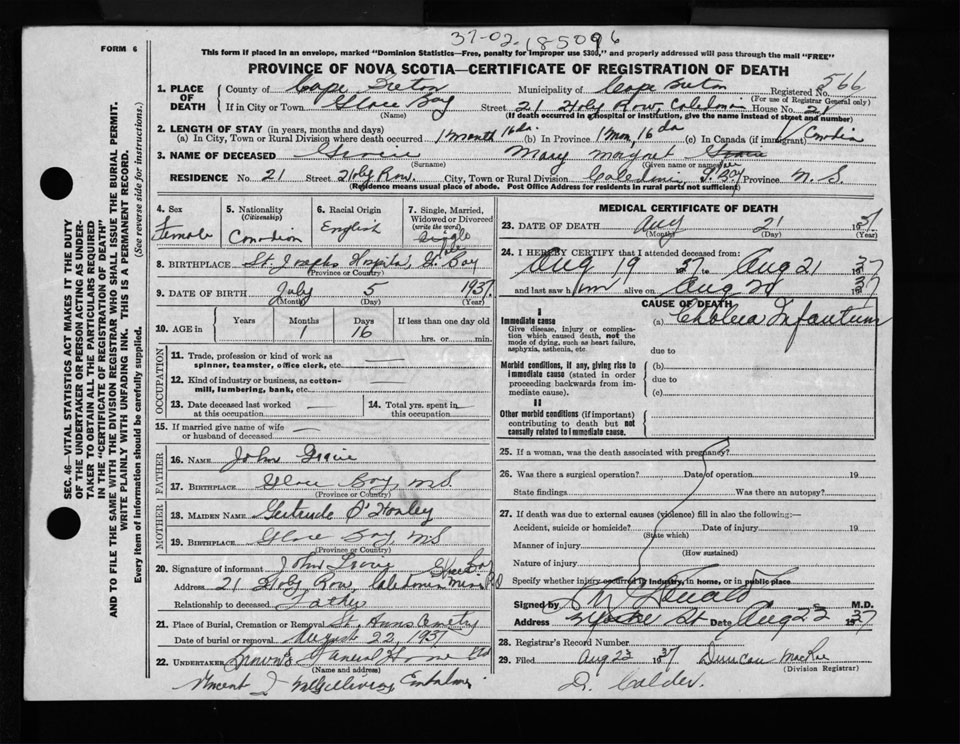 37-02-185096
FORM 6
This form if placed in an envelope, marked "Dominion Statistics—Free, penalty for improper use $300," and properly addressed will pass through the mail "FREE"
PROVINCE OF NOVA SCOTIA—CERTIFICATE OF REGISTRATION OF DEATH
1. PLACE OF DEATH
County of Cape Breton Municipality of Cape Breton Registered No. 566
(For use of Registrar General only)
If in City or Town Glace Bay Street 21 Row, Caledonia House No. 21
(Name) (If death occurred in a hospital or institution, give the name instead of street and number)
2. LENGTH OF STAY (in years, months and days)
(a) In City, Town or Rural Division where death occurred 1 Month 16 da. (b) In Province 1 Mon, 16 da (c) In Canada (if immigrant) Canadian
3. NAME OF DECEASED Mary
(Surname) (Given name or names)
RESIDENCE No. 21 Street Row. City, Town or Rural Division Caledonia Province N. S.
(Residence means usual place of abode. Post Office Address for residents in rural parts not sufficient)
4. Sex
Female
5. Nationality
(Citizenship)
Canadian
6. Racial Origin
English
7. Single, Married, Widowed or Divorced
(write the word)
Single
8. BIRTHPLACE St. Josephs Hospital, Gl. Bay
(Province or Country)
9. DATE OF BIRTH July 5 1937
(Month) (Day) (Year)
10. AGE in Years Months Days If less than one day old
1 16 hrs. or min.
OCCUPATION
11. Trade, profession or kind of work as spinner, teamster, office clerk, etc.
12. Kind of industry or business, as cotton-mill, lumbering, bank, etc.
13. Date deceased last worked at this occupation
14. Total yrs. spent in this occupation
15. If married give name of wife or husband of deceased
FATHER
16. NAME John
17. BIRTHPLACE Glace Bay, N.S
(Province or Country)
MOTHER
18. MAIDEN NAME Gertrude O'Hanley
19. BIRTHPLACE Glace Bay, N.S
(Province or Country)
20. Signature of informant John
Address 21 Row, Caledonia Mines
Relationship to deceased Father
21. Place of Burial, Cremation or Removal St. Anns Cemetry
Date of burial or removal August 22, 1937
22. UNDERTAKER Brown's Funeral Home Ltd
(Name and address)
Vincent J Embalmer
MEDICAL CERTIFICATE OF DEATH
23. DATE OF DEATH Aug 21 1937
(Month) (Day) (Year)
24. I HEREBY CERTIFY that I attended deceased from:
Aug 19 1937 to Aug 21 1937
and last saw him alive on Aug 20 1937
CAUSE OF DEATH
I
Immediate cause
Give disease, injury or complication which caused death, not the mode of dying, such as heart failure, asphyxia, asthenia, etc.
(a) Cholera Infantum
due to
Morbid conditions, if any, giving rise to immediate cause (stated in order proceeding backwards from immediate cause).
(b)
due to
(c)
II
Other morbid conditions (if important) contributing to death but not causally related to immediate cause.
25. If a woman, was the death associated with pregnancy?
26. Was there a surgical operation? Date of operation 19
State findings Was there an autopsy?
27. If death was due to external causes (violence) fill in also the following:—
Accident, suicide or homicide? Date of injury 19
(State which)
Manner of injury
(How sustained)
Nature of injury
Specify whether injury occurred in industry, in home, or in public place
Signed by M.D.
Address St Date Aug 22 1937
28. Registrar's Record Number
29. Filed Aug 23 1937 Duncan MacRae
(Division Registrar)
D. Calder.
SEC. 46—VITAL STATISTICS ACT MAKES IT THE DUTY
OF THE UNDERTAKER OR PERSON ACTING AS UNDERTAKER TO OBTAIN ALL THE PARTICULARS REQUIRED
IN THE "CERTIFICATE OF REGISTRATION OF DEATH"
AND TO FILE THE SAME WITH THE DIVISION REGISTRAR WHO SHALL ISSUE THE BURIAL PERMIT.
WRITE PLAINLY WITH UNFADING INK. THIS IS A PERMANENT RECORD.
Every item of information should be carefully supplied. (See reverse side for instructions.)